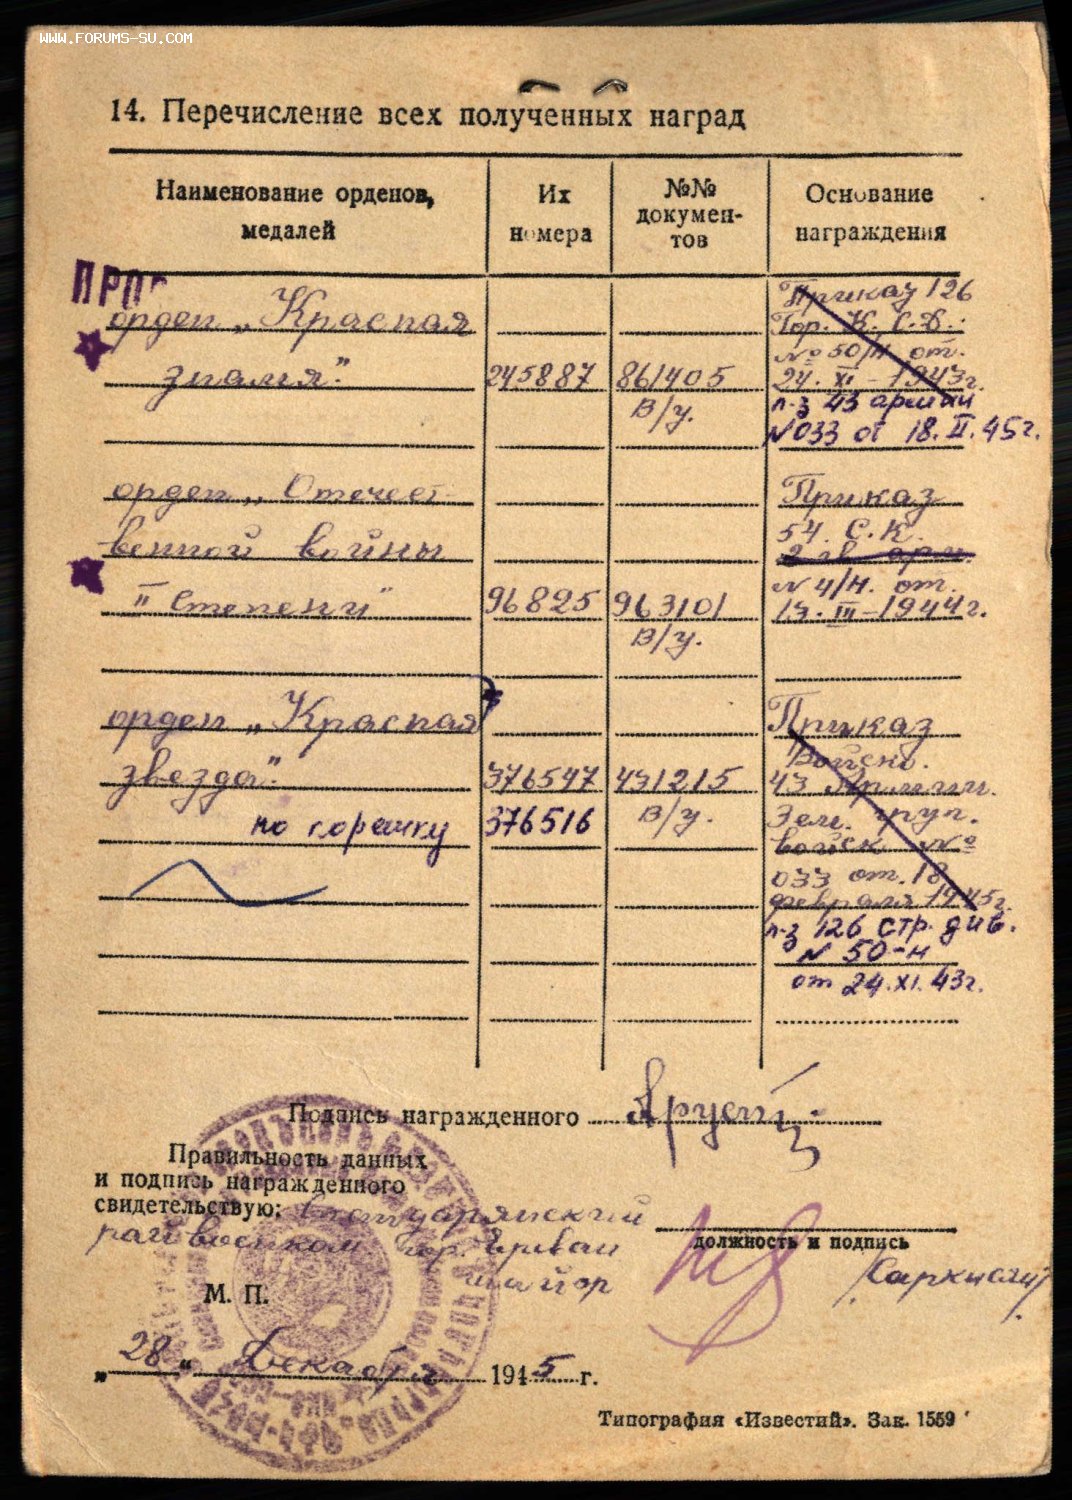 WWW.FORUMS-SU.COM
14. Перечисление всех полученных наград
Наименование орденов, медалей
Их номера
№№ документов
Основание награждения
орден „Красная
знамя".
245887
861405
в/у.
Приказ 126
Гор. К. С. Д.
№ 50/н от.
24. XI – 1943г.
п-з 43 армии
№033 от 18. II. 45г.
орден „Отечест
венной войны
II степени"
96825
963101
в/у.
Приказ
54. С. К.
2 гв. арм.
№ 4/н. от.
13. III – 1944г.
орден „Красная
звезда".
376547
431215
в/у.
по горешку
376516
Приказ
Войско.
43 Армии.
Зем. груп.
войск №
033 от. 18
февраля 1945г.
п-з 126 стр. див.
№ 50-н
от 24. XI. 43г.
Подпись награжденного
Правильность данных
и подпись награжденного
свидетельствую:
райвоенком гор. Ереван
майор
должность и подпись
М. П.
„ 28 " Декабря 1945 г.
Типография «Известий». Зак. 1559